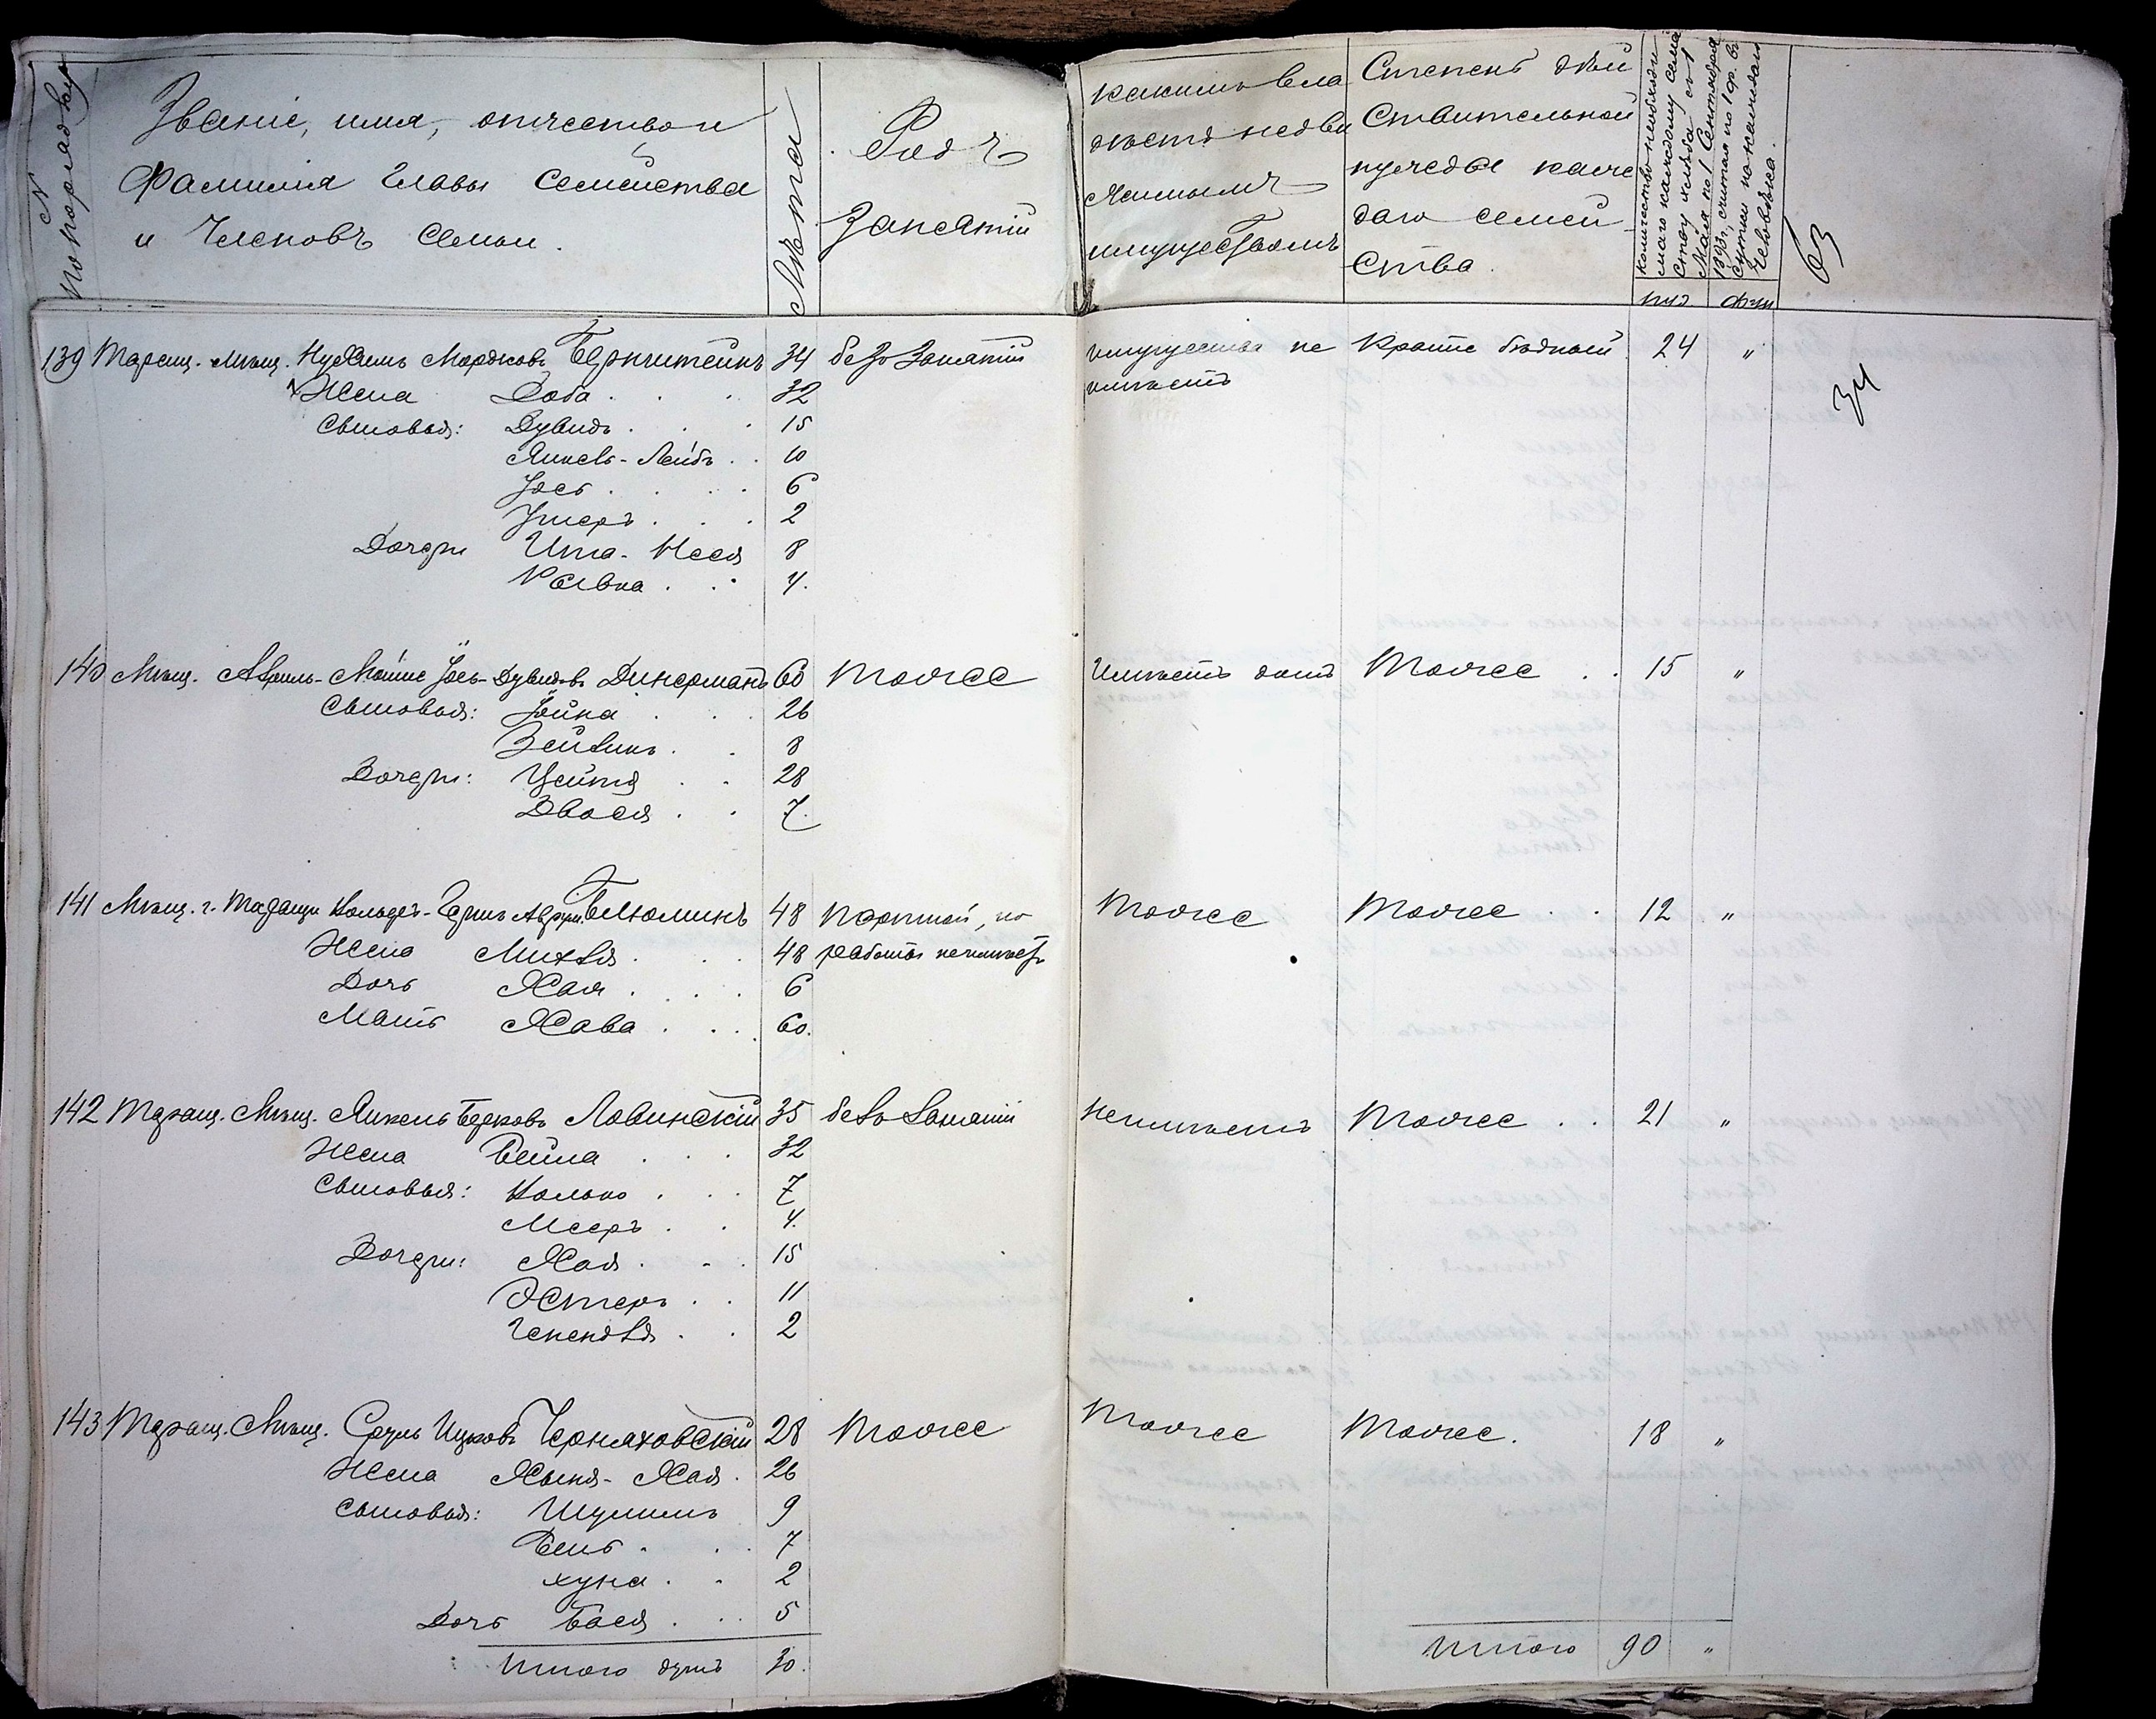 № по порядку
Званіе, имя, отчество и
фамилія главы семейства
и членовъ семьи.
Лѣта
Родъ
занятій
какимъ вла
дѣетъ недви
жимымъ
имуществомъ
Степень дѣй
ствительной
нужды каж
даго семей
ства.
Количество необходи
маго каждому семей
ству хлѣба съ 1
Мая по 1 Сентября
189 г., считая по 1 ф. въ
сутки на каждаго
человѣка.
пуд. фун.
63
34
139 Таращ. мѣщ. Нухимъ Мордковъ Бернштейнъ 34 безъ занятій имущества не Крайне бѣдный 24 "
Жена Доба . . . 32 имѣетъ
Сыновья: Дувидъ . . . 15
Янкель-Лейбъ . . 10
Іось . . . . 6
Ушеръ . . . 2
Дочери Ита-Нееся 8
Ривка . . 4.
140 Мѣщ. Аврумъ-Мойше Іось-Дувидовъ Динерманъ 60 тоже Имѣетъ домъ Тоже . . 15 "
Сыновья: Іойна . . . 26
Зейликъ . . 8
Дочери: Цейтя . . 28
Двося . . 7.
141 Мѣщ. г. Таращи Авру. Белюминъ 48 портной, но Тоже Тоже . . 12 "
Жена Михля . . . 48 работы неимѣетъ
Дочь Хая . . . . 6
Мать Хава . . . 60.
142 Таращ. Мѣщ. Янкель Берковъ Ловинскій 35 безъ занятій Неимѣетъ Тоже . . 21 "
Жена Бейла . . . 32
Сыновья: . . . 7
Мееръ . . 4.
Дочери: Хая . . . 15
Эстеръ . . 11
. . 2
143 Таращ. Мѣщ. Сруль Ицковъ Черняховскій 28 тоже Тоже Тоже. 18 "
Жена Хая . 26
Сыновья: Шулимъ 9
. . . 7
Хуна . . 2
Дочь Бася . . . 5
Итого душъ 30. Итого 90 "